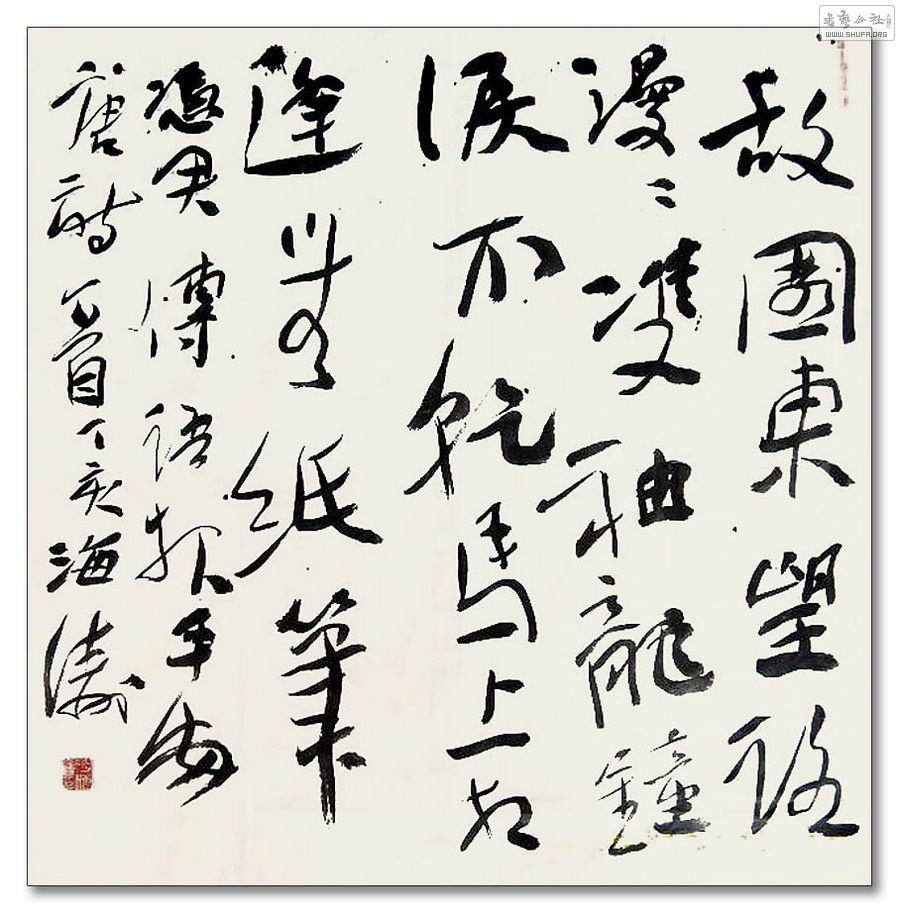 書藝公社
WWW.SHUFA.ORG
故園東望路
漫〻雙袖龍鐘
淚不乾馬上相
逢無紙筆
憑君傳語報平安
唐詩一首丁亥海濤